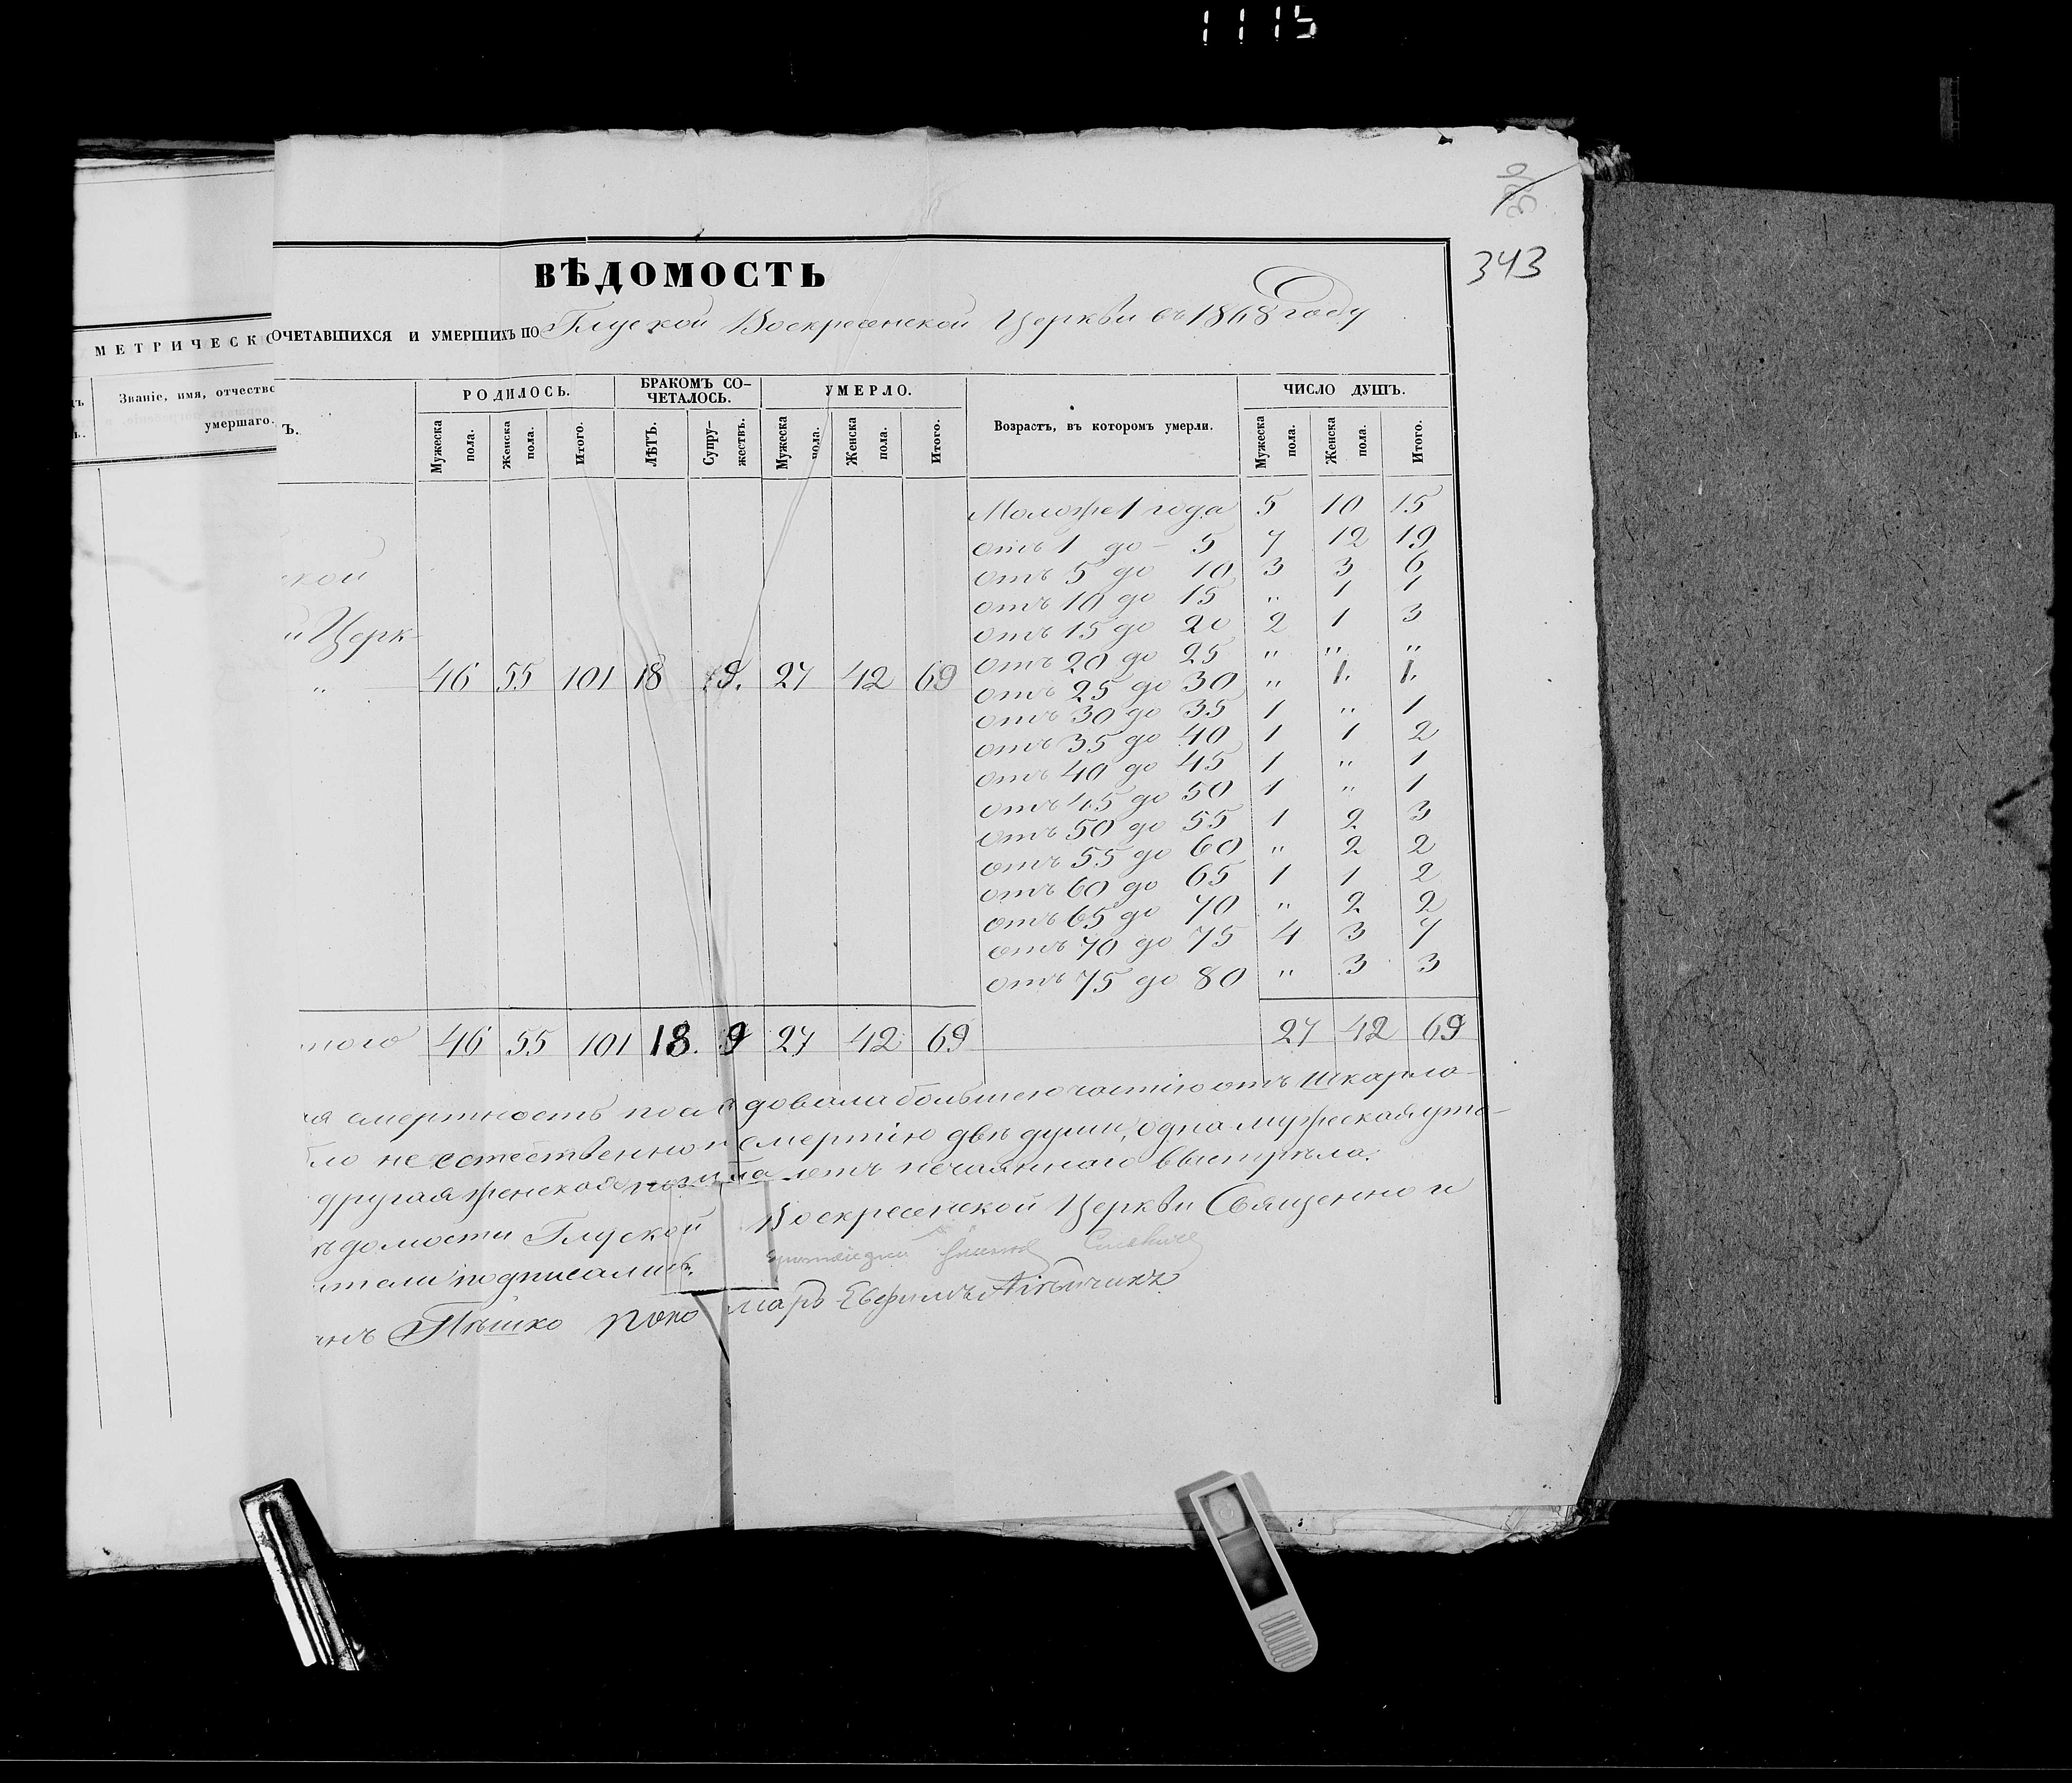 1115
330
343
ВѢДОМОСТЬ
ОЧЕТАВШИХСЯ И УМЕРШИХЪ ПО Глуской Воскресенской Церкви въ 1868 году
МЕТРИЧЕСКО
Званіе, имя, отчество
умершаго.
Ъ.
РОДИЛОСЬ. БРАКОМЪ СО-ЧЕТАЛОСЬ. УМЕРЛО. Возрастъ, въ котором умерли. ЧИСЛО ДУШЪ.
Мужеска пола. Женска пола. Итого. ЛѢТЪ. Супру-жествъ. Мужеска пола. Женска пола. Итого. Мужеска пола. Женска пола. Итого.
Моложе 1 года 5 10 15
отъ 1 до - 5 7 12 19
ской
отъ 5 до 10 3 3 6
отъ 10 до 15 „ 1 1
й Церк-
отъ 15 до 20 2 1 3
отъ 20 до 25 „ „ „
„ 46 55 101 18 9. 27 42 69
отъ 25 до 30 „ 1. 1.
отъ 30 до 35 1 „ 1
отъ 35 до 40 1 1 2
отъ 40 до 45 1 „ 1
отъ 45 до 50 1 „ 1
отъ 50 до 55 1 2 3
отъ 55 до 60 „ 2 2
отъ 60 до 65 1 1 2
отъ 65 до 70 „ 2 2
отъ 70 до 75 4 3 7
отъ 75 до 80 „ 3 3
того 46 55 101 18. 9 27 42 69 27 42 69
ая смертность последовала большею частію отъ шкарла-
ло не естественною смертію двѣ души, одна мужеская уто-
другая женская погибла отъ нечаяннаго выстрѣла.
ѣдомости Глуской Воскресенской Церкви Священно и
тели подписались.
Пѣшко поно марь Евфимъ